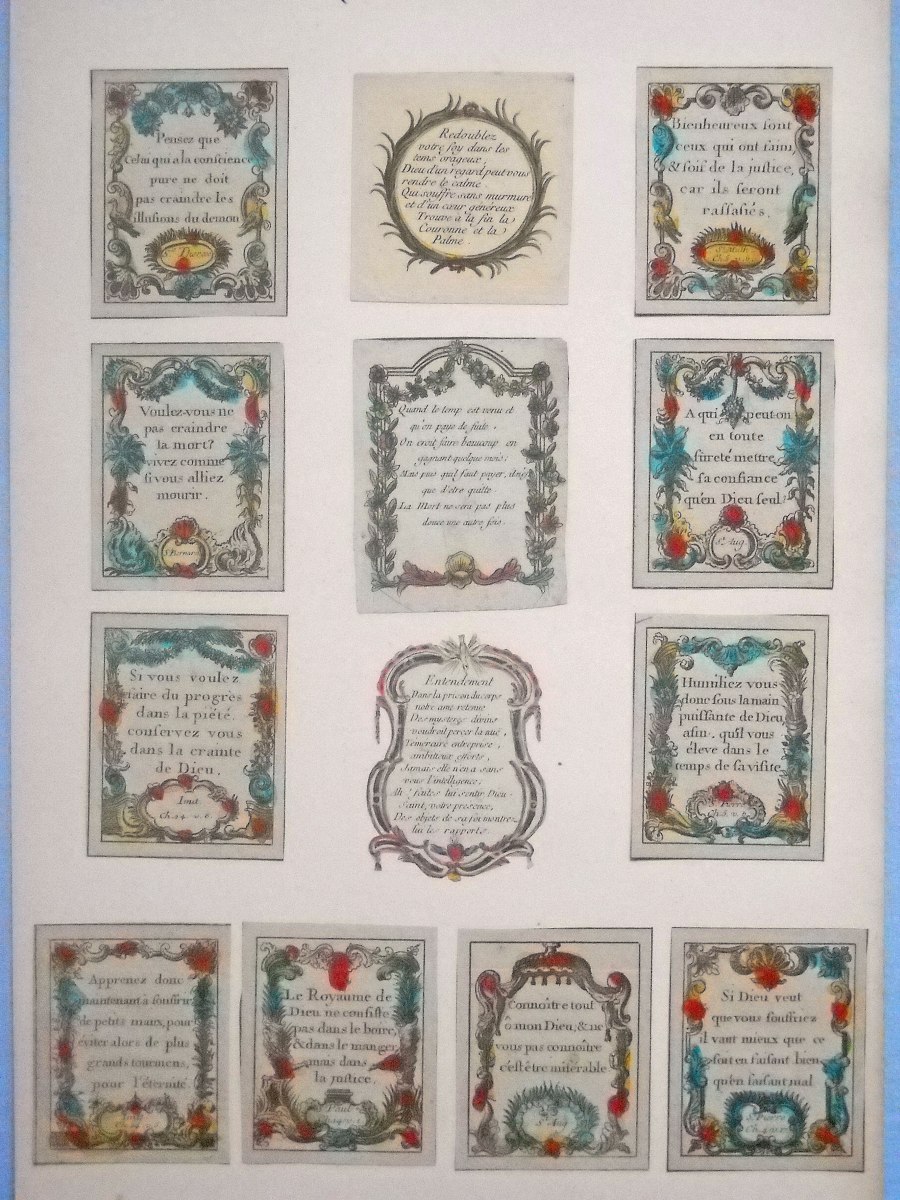 Pensez que
Celui qui a la conscience
pure ne doit
pas craindre les
illusions du demon
Redoublez
votre foy dans les
tems orageux,
Dieu d'un regard peut vous
rendre le calme.
Qui souffre sans murmure
et d'un cœur généreux
Trouve à la fin la
Couronne et la
Palme.
Bienheureux sont
ceux qui ont faim,
& soif de la justice,
car ils seront
rassasiés.
Ch. 5. v. 6.
Voulez-vous ne
pas craindre
la mort?
vivez comme
si vous alliez
mourir.
S. Bernard
Quand le temp est venu et
qu'on paye de suite,
On croit faire beaucoup en
gagnant quelque mois;
Mais puis qu'il faut payer,
que d'etre quitte
La Mort ne sera pas plus
douce une autre fois.
A qui peut-on
en toute
sûreté mettre
sa confiance
qu'en Dieu seul?
St. Aug.
Si vous voulez
faire du progrès
dans la piété.
conservez vous
dans la crainte
de Dieu.
Imit
Ch. 24. v. 6.
Entendement
Dans la prison du corps
notre ame retenue
Des mysteres divins
voudroit percer la nuë,
Temeraire entreprise,
ambitieux efforts,
Jamais elle n'en a sans
vous l'intelligence,
Ah! faites lui sentir Dieu
Saint, votre presence,
Des objets de sa foi montrez
lui les rapports.
Humiliez vous
donc sous la main
puissante de Dieu
afin, qu'il vous
éleve dans le
temps de sa visite.
S. Pierre
Ch. 5. v. 6.
Apprenez donc
maintenant à souffrir
de petits maux, pour
éviter alors de plus
grands tourmens,
pour l'éternité.
Le Royaume de
Dieu ne consiste
pas dans le boire,
& dans le manger,
mais dans
la justice.
S. Paul
Connoitre tout
ô mon Dieu, & ne
vous pas connoitre
c'est être misérable
St. Aug
Si Dieu veut
que vous souffriez
il vaut mieux que ce
soit en faisant bien
qu'en faisant mal
S. Pierre